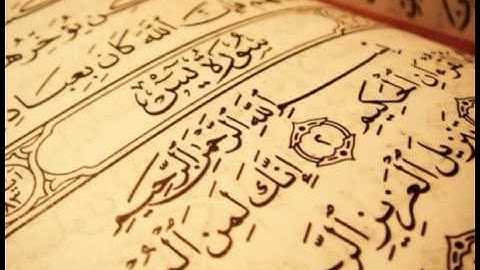 كِن يُؤَخِّرُهُمْ
ٱللَّهَ كَانَ بِعِبَادِ
سُورَةُ يسٓ
بِسْمِ ٱللَّهِ ٱلرَّحْمَٰنِ ٱلرَّحِيمِ
ٱلْحَكِيمِ ٢ إِنَّكَ لَمِنَ ٱلْمُ
تَنزِيلَ ٱلْعَزِيزِ ٱلرَّ